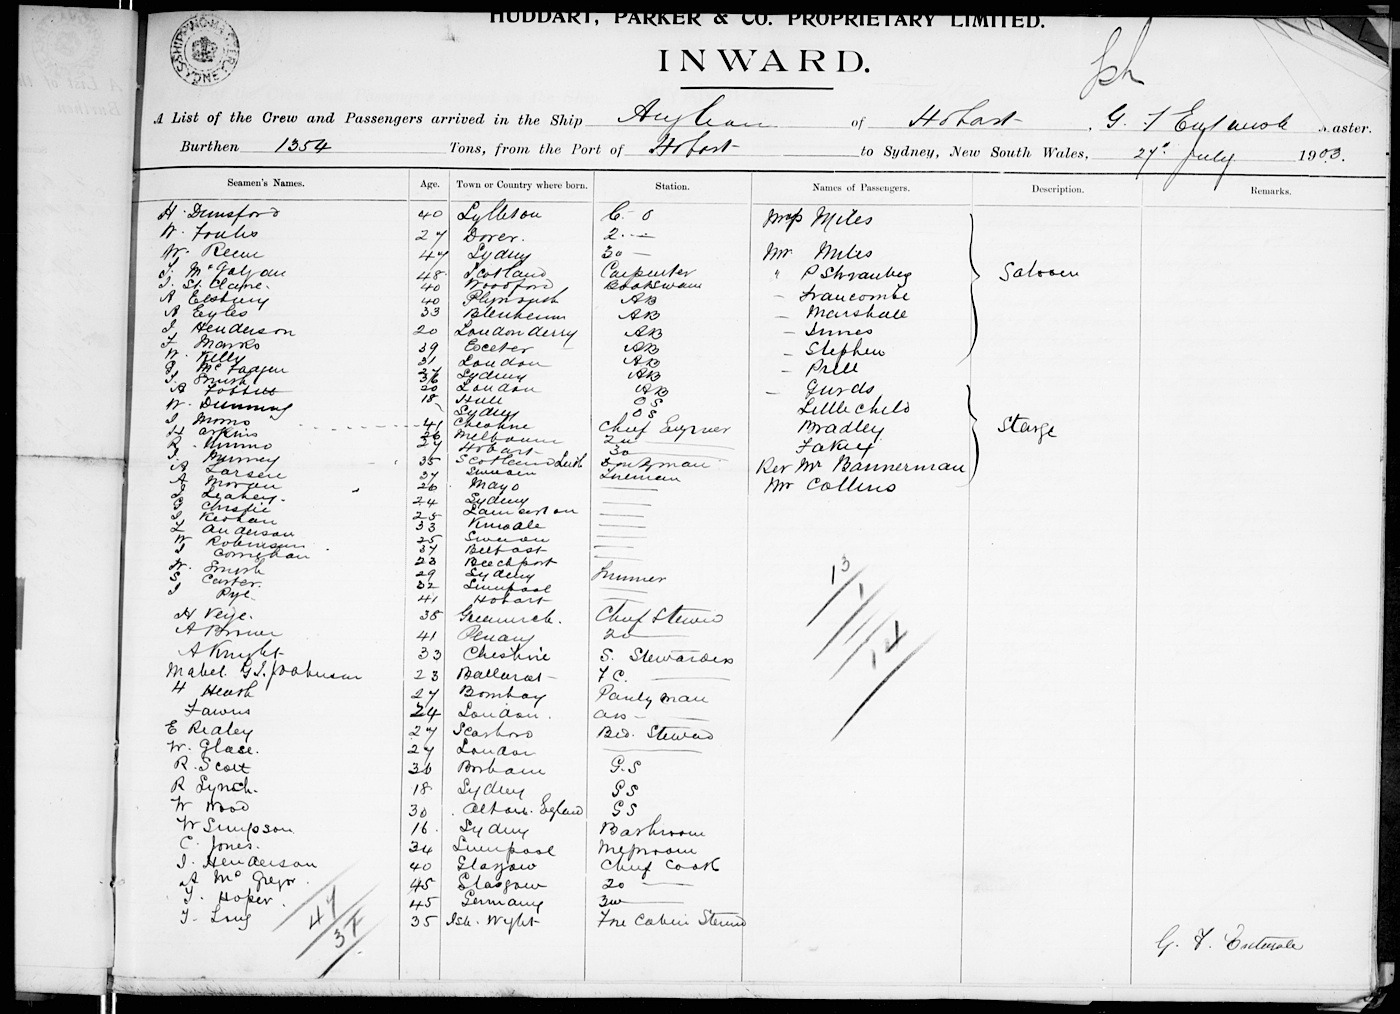 HUDDART, PARKER & CO. PROPRIETARY LIMITED.
INWARD.
SHIPPING MASTER SYDNEY
A List of the Crew and Passengers arrived in the Ship Anglian of Hobart, G. F Master.
Burthen 1354 Tons, from the Port of Hobart to Sydney, New South Wales, 27 July 1903.
Seamen's Names. Age. Town or Country where born. Station. Names of Passengers. Description. Remarks.
H. Dunsford 40 Lyttleton C. O
W. 27 Dover. 2.
W. 47 Sydney 3o
48 Scotland Carpenter
J. St. Claire. 40 Woodford Boatswain
A 40 Plymouth AB
A Eyles 33 Blenheim AB
J Henderson 20 Londonderry AB
F Marks 39 Exeter AB
W. Kelly 31 London AB
Mc Fadgen Sydney AB
J. Smith 36 London AB
A 20 Hull OS
W. Dunning 18 Sydney OS
J 41 Cheshire Chief Engineer
H 26 Melbourne 2o
R. Nimmo 27 Hobart 3o
J. Murney 35 Scotland Leith Donkeyman
A Larsen 37 Fireman
A Moran 26 Mayo
Leahey 24 Sydney
Christie 25
J 33 Kinsale
Anderson 25
W Robinson 37 Belfast
J 23 Beechport
W. Smyth 29 Sydney Trimmer
S Carter. 32 Liverpool
J Pye 41 Hobart
H Vege. 35 Greenwich. Chief Steward
A Brown 41 Penang 2o
A Knight 33 Cheshire S. Stewardess
Mabel G. I. 23 Ballarat F C.
H Heath 27 Bombay Pantryman
Fawns 24 London. ass
E Ridley 27 Scarboro Bed. Steward
W. Glase. 27 London
R. Scott 30 G.S
R Lynch. 18 Sydney GS
W Wood 30 England GS
W Simpson 16. Sydney Bathroom
C. Jones. 34 Liverpool Messroom
J. Henderson 40 Glasgow Chief Cook
A Mc Gregor 45 Glasgow 2o
J. Hoper. 45 Germany 3o
J. Long 35 Isle. Wight Fore Cabin Steward
47
37
Miss Miles
Mr Miles
" P
– Francombe
– Marshall
– Innes
– Stephen
– Prell
– Gurds
Little Child
Bradley
Fahey
Rev Mr Bannerman
Mr Collins
Saloon
Sterge
13
1
14
G. F.